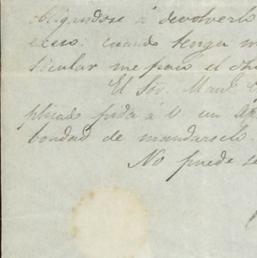 obligandose á devolverlo
cuando tenga
ticular me paso el
El Sor. Manl
plicado pida á V un
bondad de mandarselo
No puede